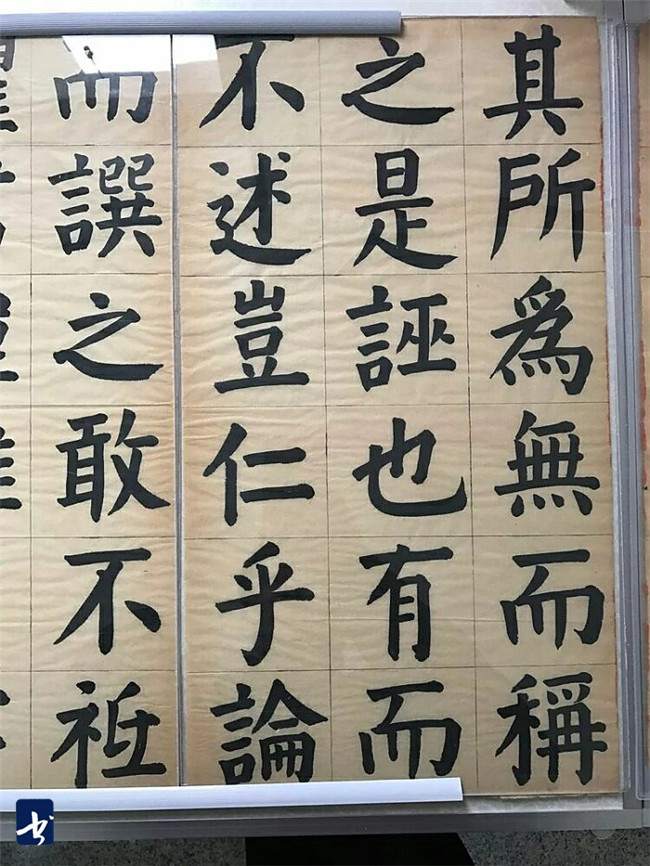 其所爲無而稱
之是誣也有而
不述豈仁乎論
而譔之敢不祗